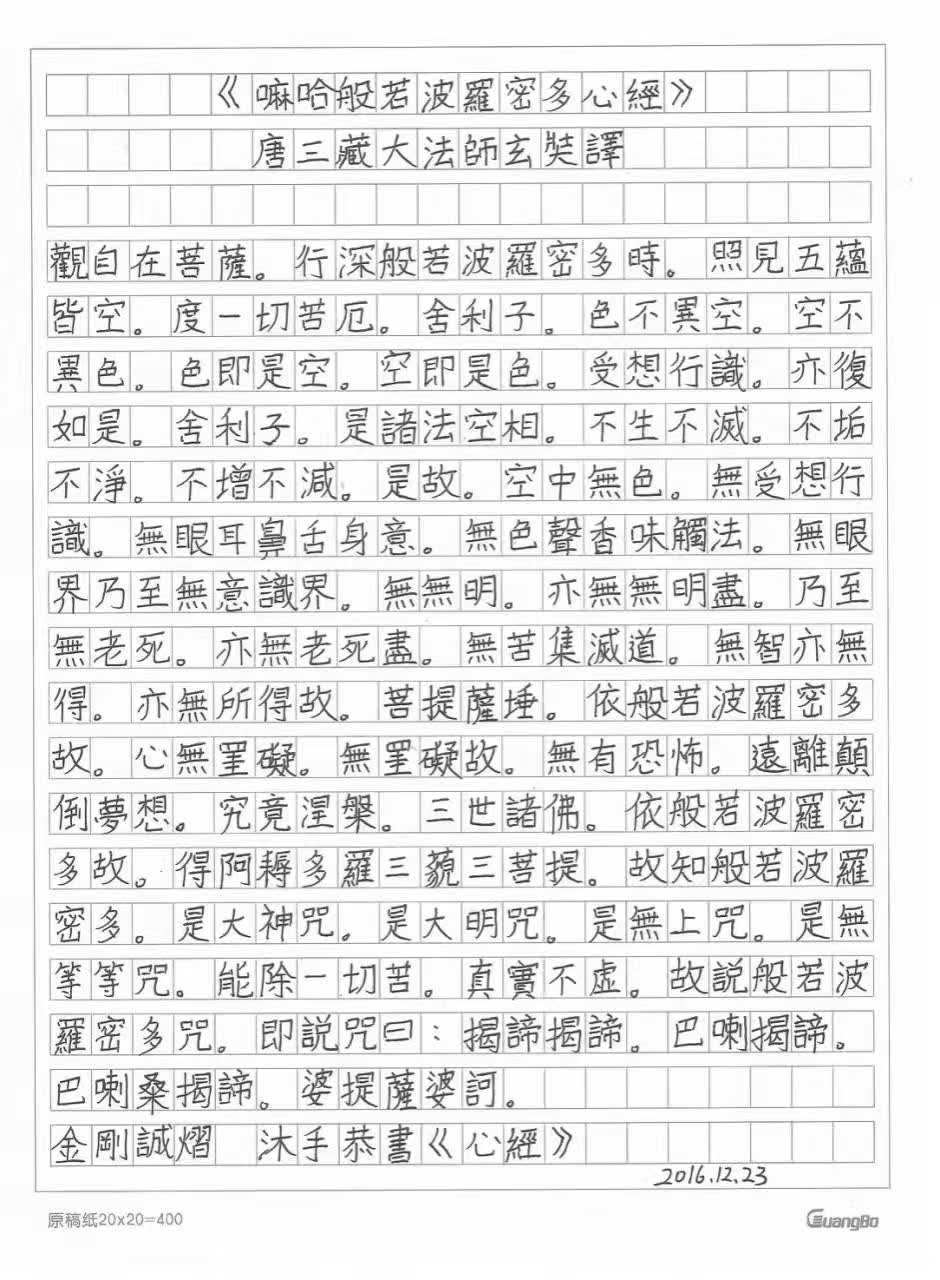 《嘛哈般若波羅密多心經》
唐三藏大法師玄奘譯
觀自在菩薩。行深般若波羅密多時。照見五蘊
皆空。度一切苦厄。舍利子。色不異空。空不
異色。色即是空。空即是色。受想行識。亦復
如是。舍利子。是諸法空相。不生不滅。不垢
不淨。不增不減。是故。空中無色。無受想行
識。無眼耳鼻舌身意。無色聲香味觸法。無眼
界乃至無意識界。無無明。亦無無明盡。乃至
無老死。亦無老死盡。無苦集滅道。無智亦無
得。亦無所得故。菩提薩埵。依般若波羅密多
故。心無罣礙。無罣礙故。無有恐怖。遠離顛
倒夢想。究竟涅槃。三世諸佛。依般若波羅密
多故。得阿耨多羅三藐三菩提。故知般若波羅
密多。是大神咒。是大明咒。是無上咒。是無
等等咒。能除一切苦。真實不虛。故説般若波
羅密多咒。即説咒曰：揭諦揭諦。巴喇揭諦。
巴喇桑揭諦。婆提薩婆訶。
金剛誠熠 沐手恭書《心經》
2016.12.23
原稿纸20x20=400 GuangBo